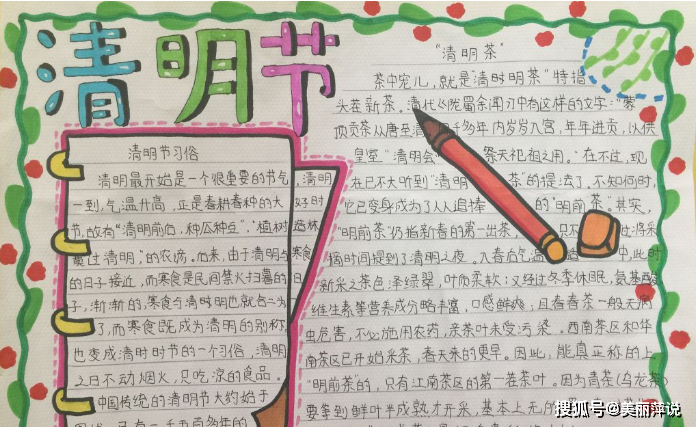 清明节
清明节习俗
清明最开始是一个很重要的节气,清明
一到,气温升高,正是春耕春种的大好时
节,故有"清明前后,种瓜种豆","植树造林
莫过清明"的农谚。后来,由于清明与寒食
的日子接近,而寒食是民间禁火扫墓的日
子,渐渐的,寒食与清时明也就合一为
了,而寒食既成为清明的别称
也变成清时时节的一个习俗,清明
之日不动烟火,只吃凉的食品。
中国传统的清明节大约始于
"清明茶"
茶中宠儿,就是清时明茶"特指
头茬新茶。清代《陇蜀余闻》中有这样的文字:"蒙
顶贡茶从唐至清 千多年内岁岁入宫,年年进贡,以供
皇室"清明会" 祭天祀祖之用。"在不过,现
在已不大听到"清明 茶"的提法了,不知何时,
它已变身成为了人人追捧 的"明前茶"。其实,
"明前茶"仍指新春的第一出茶, 只不 过将采
摘时间提到了清明之夜。入春后气温 中,此时
新采之茶色泽绿翠,叶质柔软;又经过冬季休眠,氨基酸
维生素等营养成分略丰富,口感鲜爽,且春春茶一般无病
虫危害,不必施用农药,亲茶叶未受污染。西南茶区和华
南茶区已开始采茶,春天来的更早。因此,能真正称的上
"明前茶"的,只有江南茶区的第一茬茶叶。因为青茶(乌龙茶)
要等到鲜叶半成熟才开采,基本上无的
搜狐号@美丽萍说